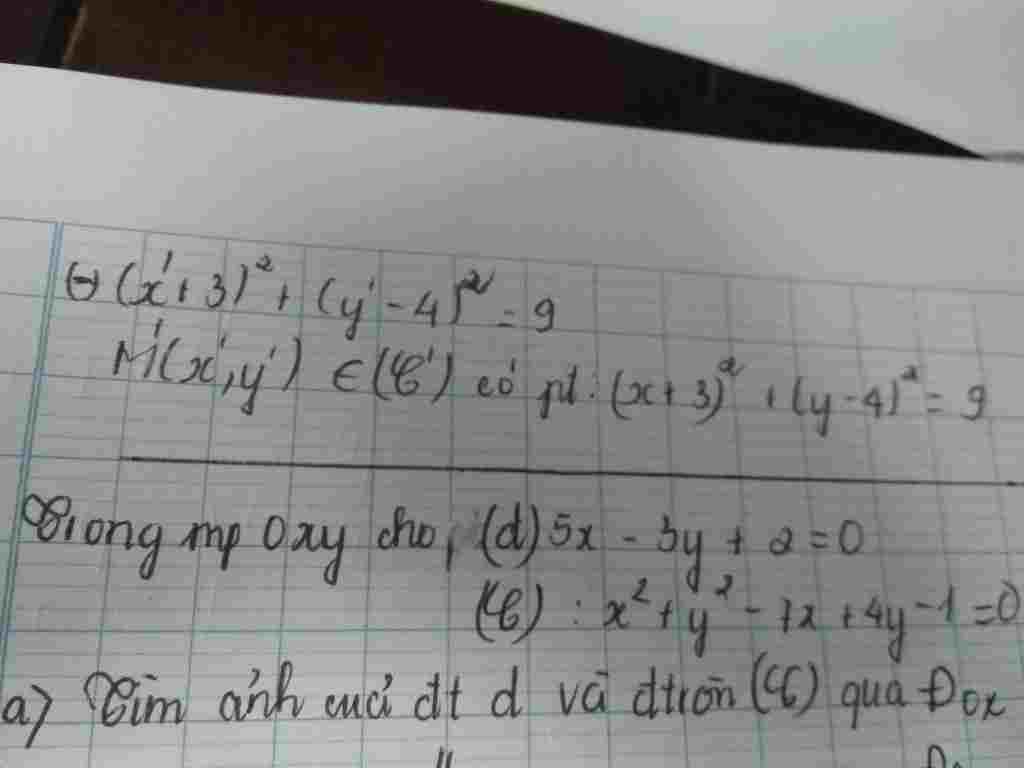 (=) (x'+3)² + (y'-4)² = 9
M'(x', y') ∈ (C') có pt: (x+3)² + (y-4)² = 9
Trong mp Oxy cho, (d) 5x - 3y + 2 = 0
(C) : x² + y² - 7x + 4y - 1 = 0
a) Tìm ảnh của đt d và đtròn (C) qua Đox